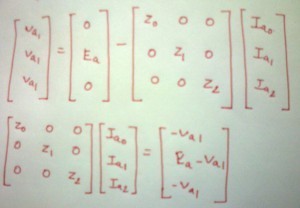 [Va1 Va1 Va1] = [0 Ea 0] − [Z0 0 0 0 Z1 0 0 0 Z2] [Ia0 Ia1 Ia2]
[Z0 0 0 0 Z1 0 0 0 Z2] [Ia0 Ia1 Ia2] = [−Va1 Ea−Va1 −Va1]